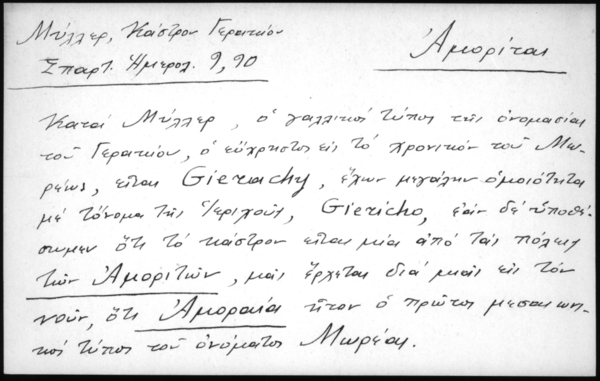 Μύλλερ, Κάστρον Γερακίου
Σπαρτ. Ἡμερολ. 9, 90
Ἀμορῖται
Κατά Μύλλερ, ὁ γαλλικός τύπος τῆς ὀνομασίας
τοῦ Γερακίου, ὁ εὔχρηστος εἰς τό χρονικόν τοῦ Μω-
ρέως, εἶναι Gierachy, ἔχων μεγάλην ὁμοιότητα
μέ τὄνομα τῆς Ἱεριχοῦς, Giericho, ἐάν δέ ὑποθέ-
σωμεν ὅτι τό κάστρον εἶναι μία ἀπό τάς πόλεις
τῶν Ἀμοριτῶν, μᾶς ἔρχεται διά μιᾶς εἰς τόν
νοῦν, ὅτι Ἀμοραία ἦτον ὁ πρῶτος μεσαιωνι-
κός τύπος τοῦ ὀνόματος Μωρέας.